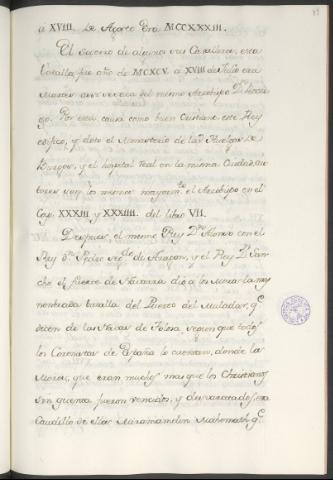 á XVIII. de Agosto Era MCCXXXIII.
El segun de algunos sus Capellanes, esta
batalla, fue año de MCXCV. á XVIII de Julio era
Martes del mismo Arzobispo Dn. Rodri
go. Por esta causa como buen Cristiano este Rey
edificó, y dotó el Monasterio de las Huelgas de
Burgos, y el hospital Real en la misma Ciudad, 
lo mismo el Arzobispo en el
Cap. XXXIII y XXXIIII. del libro VII.
Despues el mismo Rey Dn. Alonso con el
Rey Dn. Pedro segdo. de Aragon, y el Rey Dn. San
cho el fuerte de Navarra dió a los Moros la muy
nombrada batalla del Puerto del Muladar, qe.
dicen de las Navas de Tolosa, segun que todos
los Coronistas de España lo cuentan, donde los
Moros, que eran muchos mas que los Christianos
sin quenta fueron vencidos, y desvaratados, era
Caudillo de ellos Miramamolin Mahomath qe.